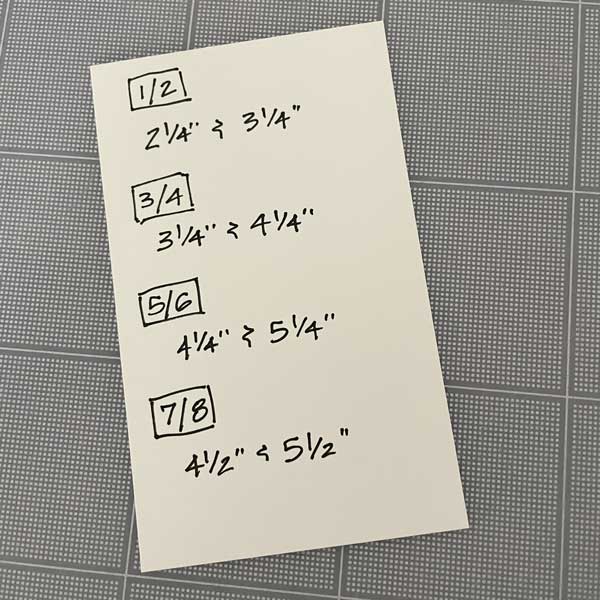 1/2
2 1/4" & 3 1/4"
3/4
3 1/4" & 4 1/4"
5/6
4 1/4" & 5 1/4"
7/8
4 1/2" & 5 1/2"